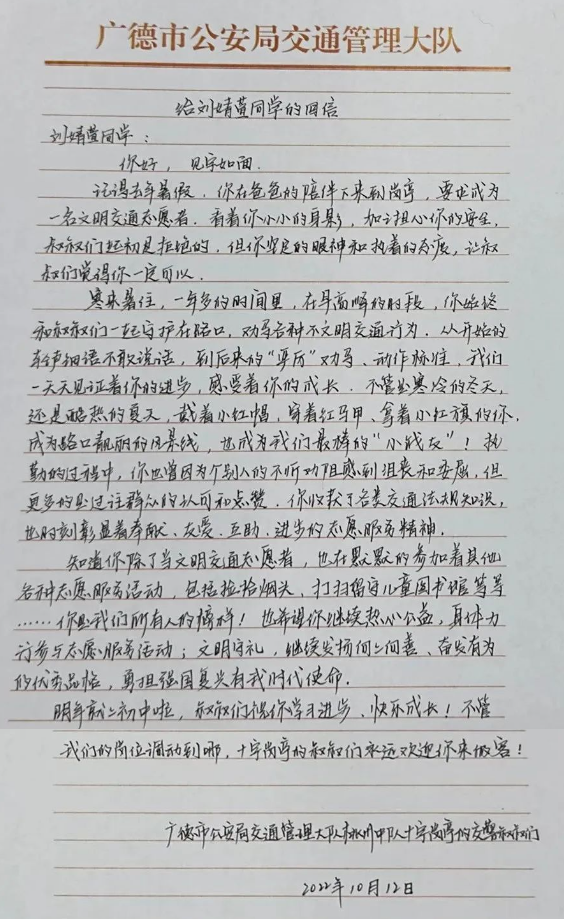 广德市公安局交通管理大队
给刘婧萱同学的回信
刘婧萱同学：
你好，见字如面．
记得去年暑假，你在爸爸的陪伴下来到岗亭，要求成为
一名文明交通志愿者．看着你小小的身影，加之担心你的安全，
叔叔们起初是拒绝的，但你坚定的眼神和执着的态度，让叔
叔们觉得你一定可以．
寒来暑往，一年多的时间里，在早高峰的时段，你始终
和叔叔们一起守护在路口，劝导各种不文明交通行为．从开始的
轻声细语不敢说话，到后来的“严厉”劝导、动作标准，我们
一天天见证着你的进步，感受着你的成长．不管是寒冷的冬天，
还是酷热的夏天，戴着小红帽，穿着红马甲、拿着小红旗的你，
成为路口靓丽的风景线，也成为我们最棒的“小战友”！执
勤的过程中，你也曾因为个别人的不听劝阻感到沮丧和委屈，但
更多的是过往群众的认可和点赞．你收获了各类交通法规知识，
也时刻彰显着奉献、友爱、互助、进步的志愿服务精神．
知道你除了当文明交通志愿者，也在默默的参加着其他
各种志愿服务活动，包括捡拾烟头、打扫留守儿童图书馆等等
……你是我们所有人的榜样！也希望你继续热心公益，身体力
行参与志愿服务活动；文明守礼，继续发扬向上向善、奋发有为
的优秀品格，勇担强国复兴有我时代使命．
明年就上初中啦，叔叔们祝你学习进步、快乐成长！不管
我们的岗位调动到哪，十字岗亭的叔叔们永远欢迎你来做客！
广德市公安局交通管理大队桃州中队十字岗亭的交警叔叔们
2022年10月12日